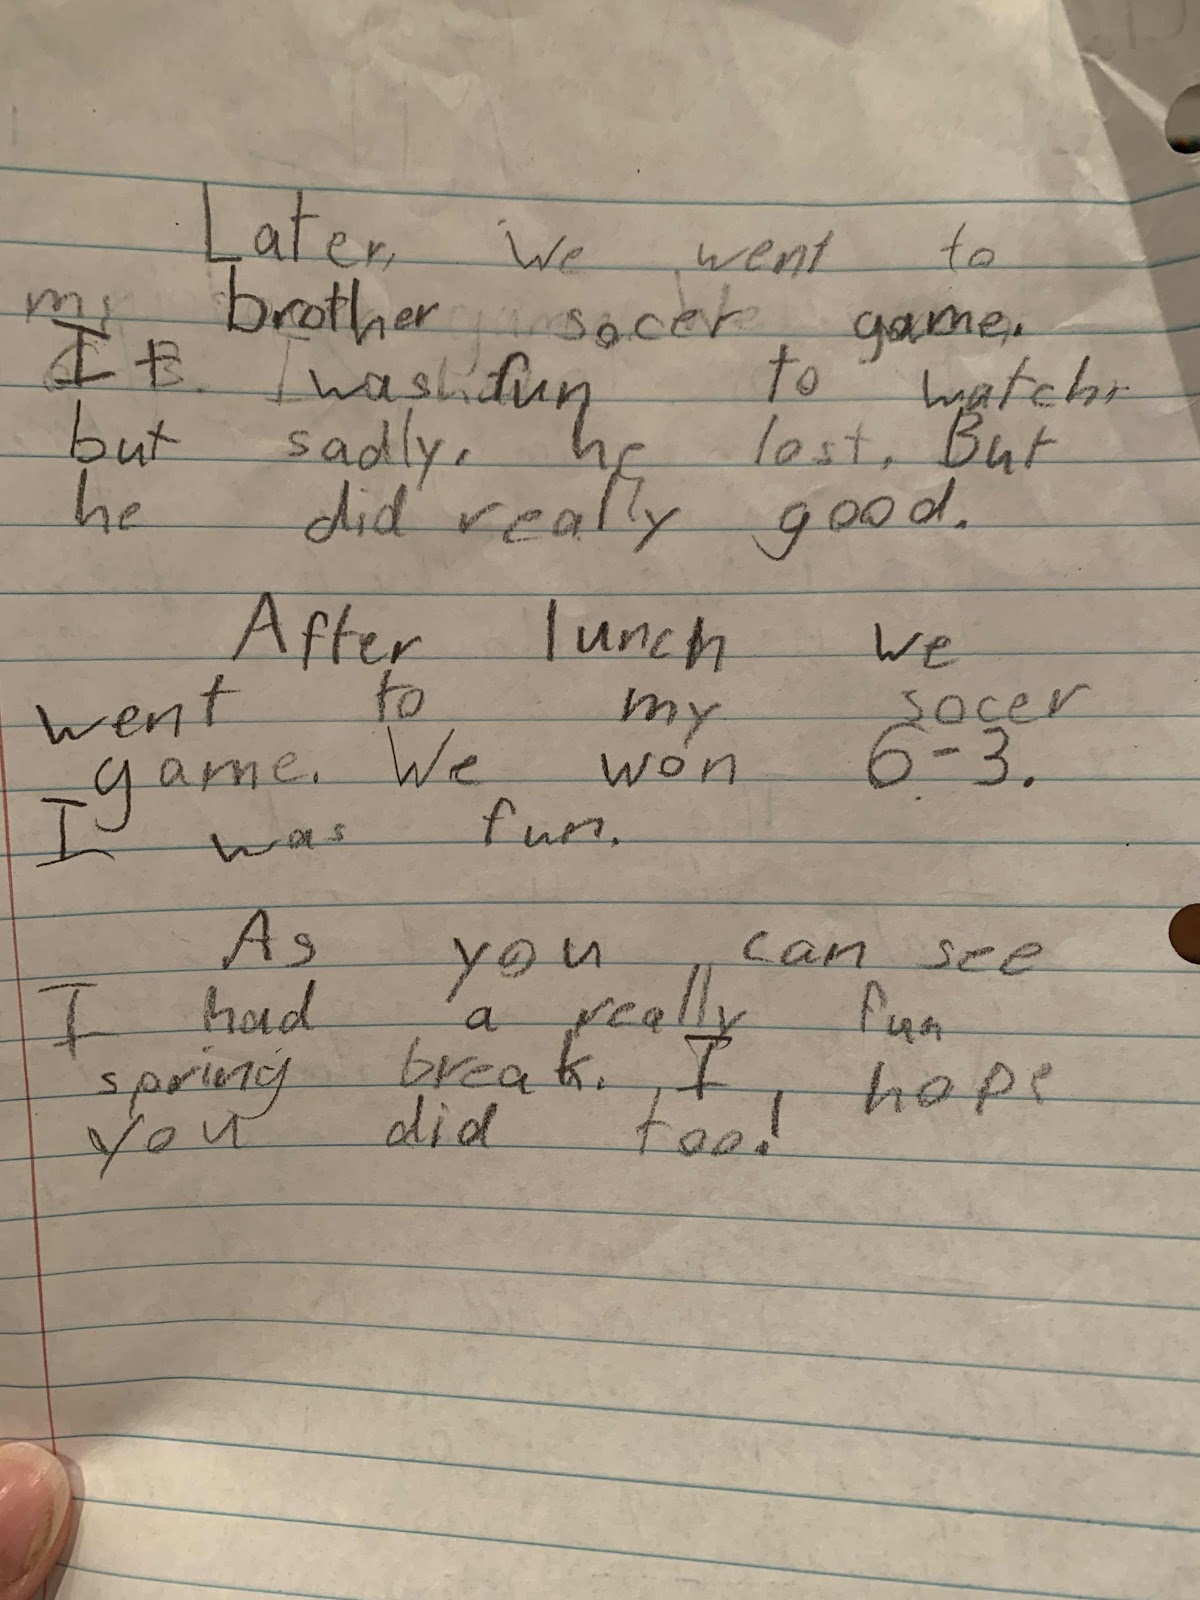 Later, We went to
my brother socer game.
It was fun to watch,
but sadly, he lost. But
he did really good.
After lunch we
went to my socer
game. We won 6-3.
I was fun.
As you can see
I had a really fun
spring break. I, hope
you did too!